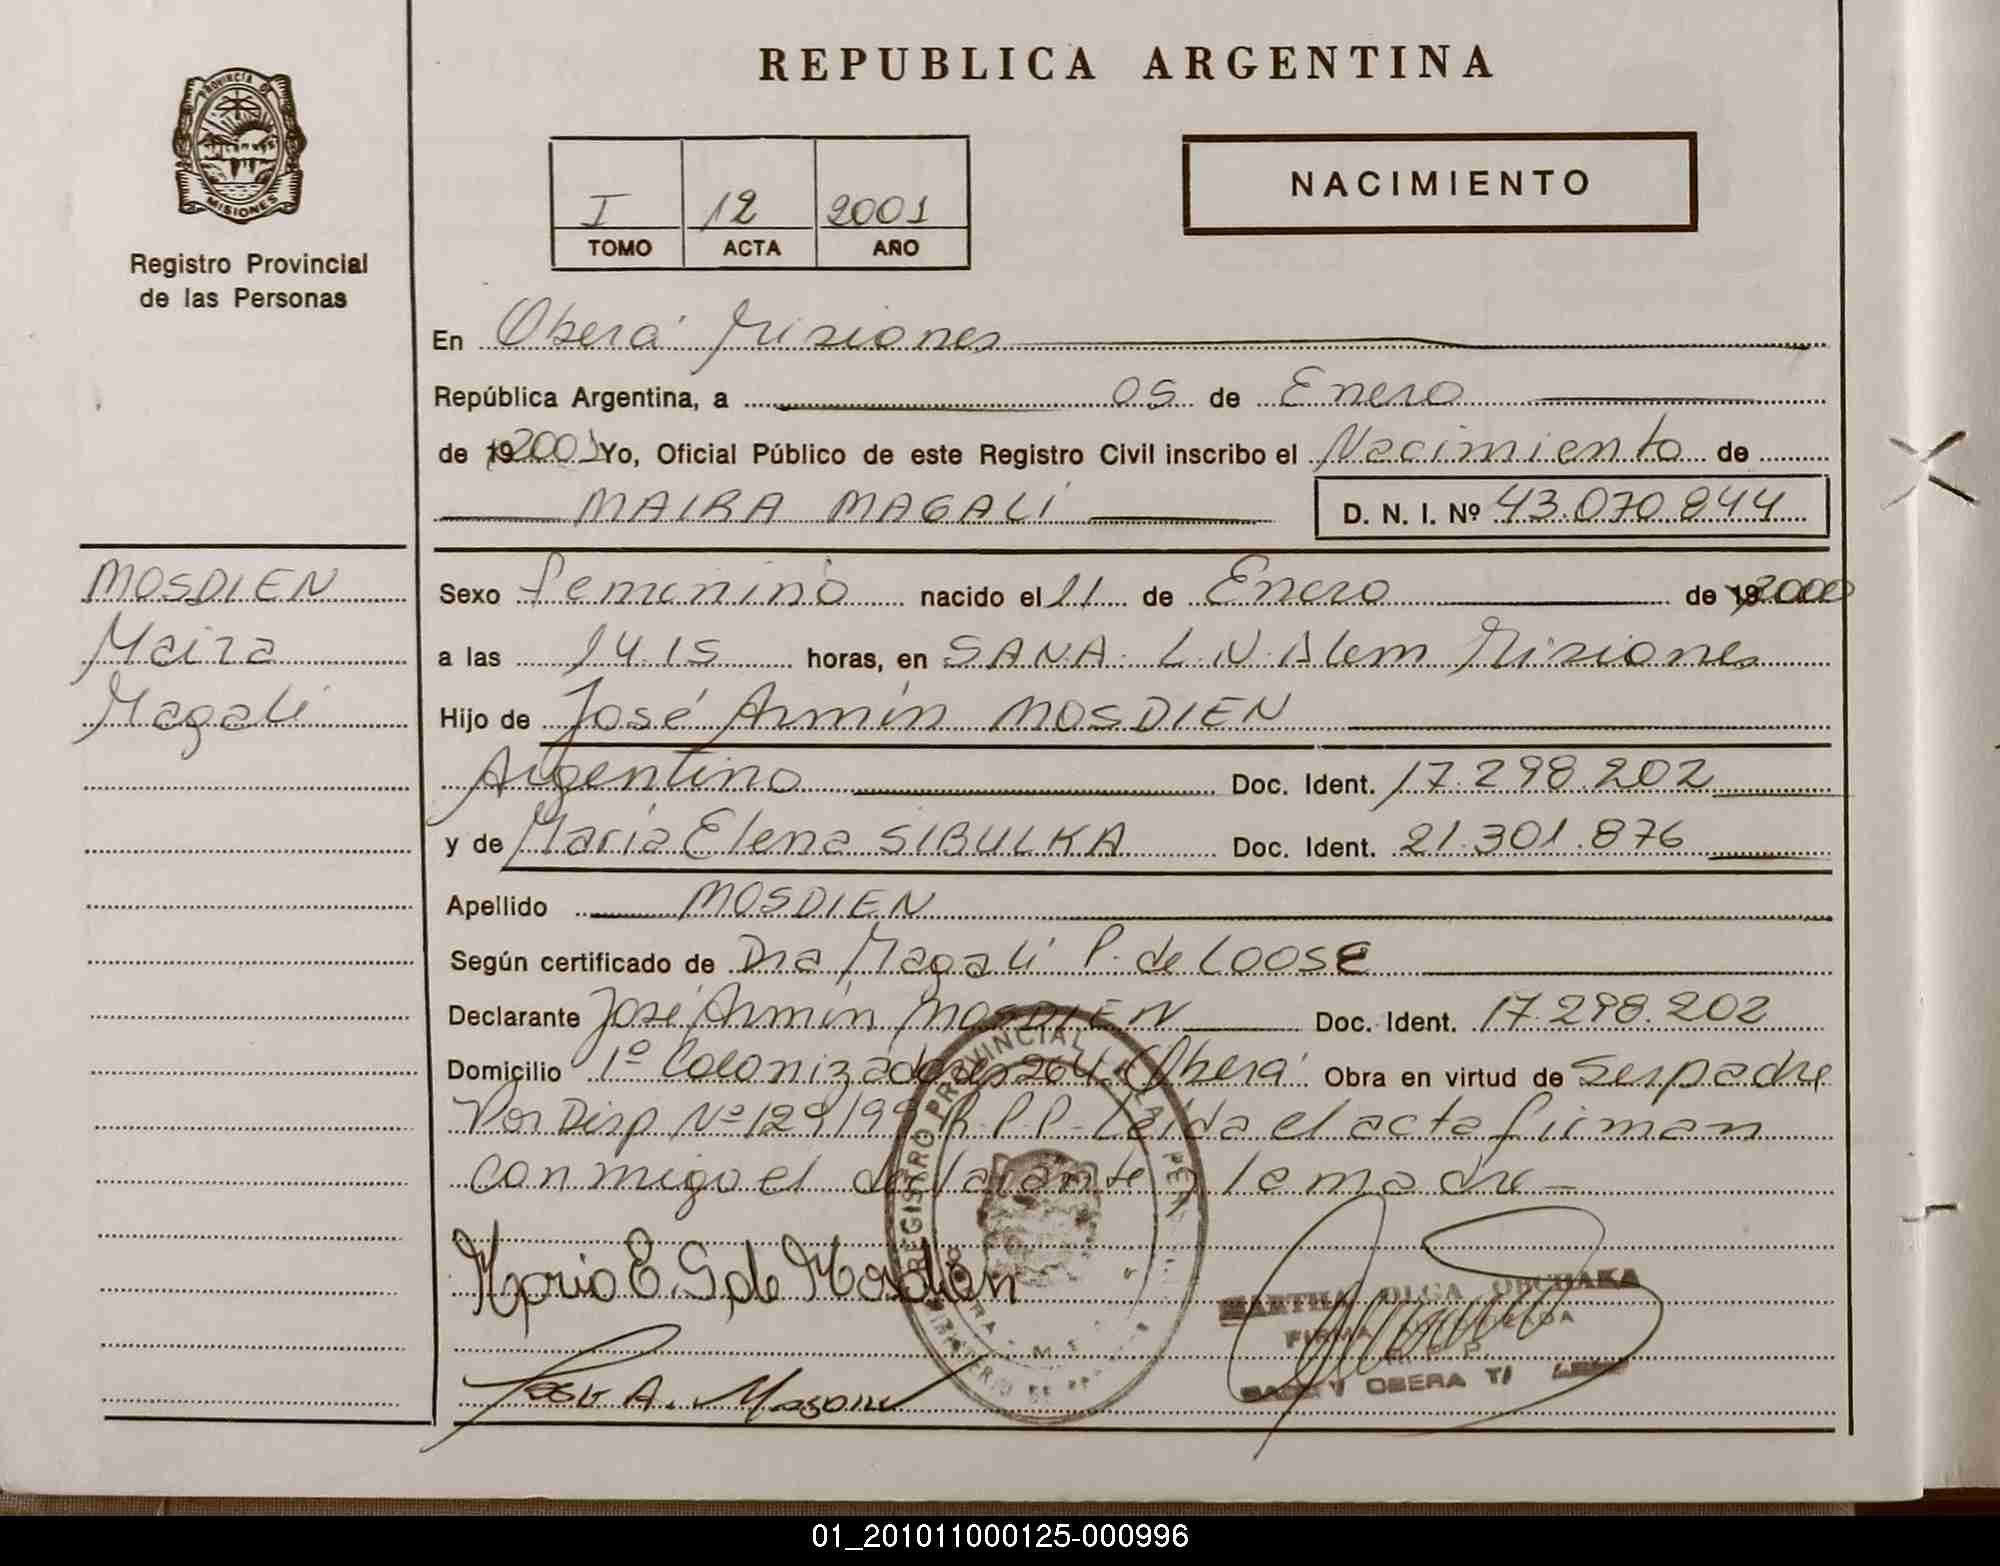 REPUBLICA ARGENTINA
PROVINCIA DE
MISIONES
Registro Provincial
de las Personas
I 12 2001
TOMO ACTA AÑO
NACIMIENTO
En Oberá Misiones
República Argentina, a 05 de Enero
de 19 2001 Yo, Oficial Público de este Registro Civil inscribo el Nacimiento de
MAIRA MAGALÍ D. N. I. Nº 43.070.844
MOSDIEN
Maira
Magalí
Sexo femenino nacido el 11 de Enero de 19 2000
a las 14.15 horas, en SANA. L.N. Alem Misiones
Hijo de José Armín MOSDIEN
Argentino Doc. Ident. 17.298.202
y de María Elena SIBULKA Doc. Ident. 21.301.876
Apellido MOSDIEN
Según certificado de Dra Magalí P. de LOOSE
Declarante José Armín MOSDIEN Doc. Ident. 17.298.202
Domicilio 1º Colonizadores 264 Oberá Obra en virtud de ser padre
Por Disp Nº 129/99 R.P.P. Leída el acta firman
conmigo el declarante y la madre
REGISTRO PROVINCIAL
Maria E. S. de Mosdien
MARTHA OLGA
FIRMA
R. P. P.
OBERA
José A. Mosdien
01_201011000125-000996